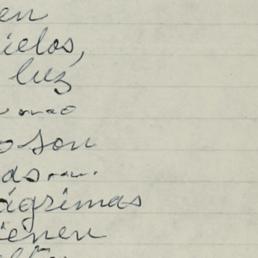 en
ielos,
luz
o son
das
ágrimas
ienen